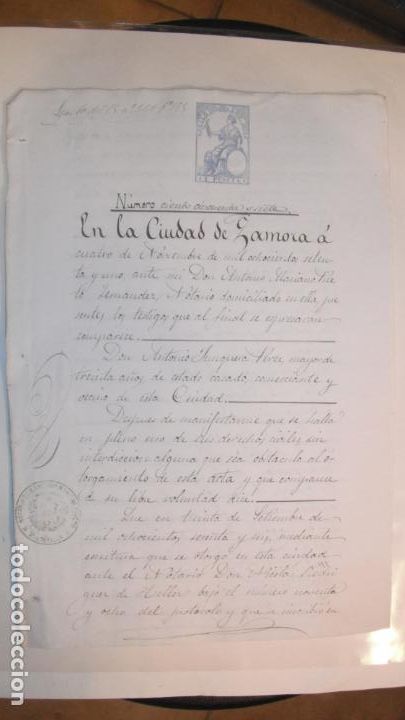 Número ciento cincuenta y siete.
En la Ciudad de Zamora á
cuatro de Noviembre de mil ochocientos seten
ta y uno, ante mi Don Antonio Mariano Prie
to Fernandez, Notario domiciliado en ella, pre
sentes los testigos que al final se espresarán
comparece
Don Antonio Junquera Perez, mayor de
treinta años, de estado casado, comerciante y
vecino de esta Ciudad.
Despues de manifestarme que se halla
en pleno uso de sus derechos civiles sin
interdiccion alguna que sea obstáculo al o
torgamiento de esta acta y que comparece
de su libre voluntad dice
Que en treinta de Setiembre de
mil ochocientos sesenta y seis, mediante
escritura que se otorgó en esta ciudad
ante el Notario Don
de bajo el número noventa
y ocho del protocolo y que
1 PESETA
todocoleccion.net